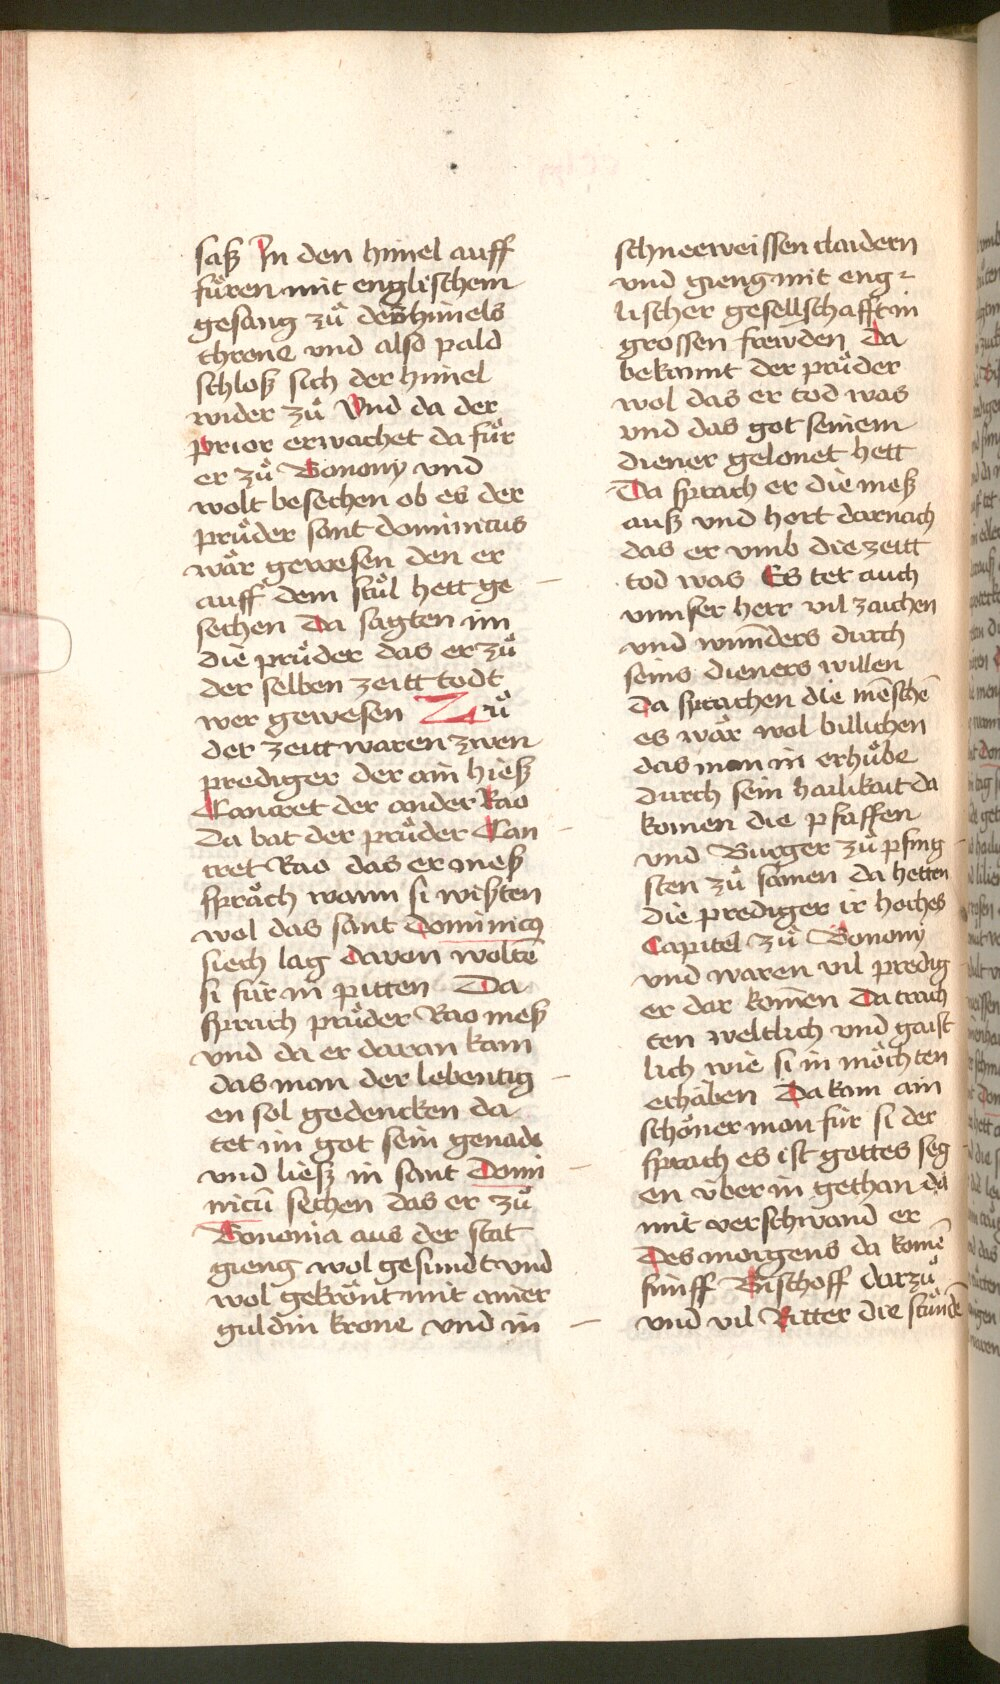 saß In den himel auff
fůren mit englischem
gesang zů des himels
throne vnd also pald
schloß sich der himel
wider zů Vnd da der
prior erwachet da fůr
er zů Bonony vnd
wolt besechen ob es der
průder sant dominicus
wår gewesen den er
auff dem stůl hett ge
sechen Da sagten im
die průder das er zů
der selben zeitt todt
wer gewesen Zů
der zeitt waren zwen
prediger der ain hieß
Cantret der ander Rao
Da bat der průder Can
tret Rao das er meß
språch wann si wißten
wol das sant Dominicus
siech lag Darvon wolte᷑
si für in pitten Da
sprach průder Rao meß
vnd da er daran kam
das man der lebentig
en sol gedencken da
tet im got sein genade
vnd ließ in sant Domi
nicū sechen das er zů
Bononia aus der stat
gieng wol gesundt vnd
wol gekrönt mit ainer
guldin krone vnd in
schneeweissen claidern
vnd gieng mit eng
lischer gesellschafft in
grossen frewden Da
bekannt der průder
wol das er tod was
vnd das got seinem
diener gelonet hett
Da sprach er die meß
auß vnd hort darnach
das er vmb die zeitt
tod was Es tet auch
vnnser herr vil zaichen
vnd wunders durch
seins dieners willen
Da sprachen die mēschē
es wår wol billichen
das man in erhůbe
durch sein hailikait da
komen die pfaffen
vnd Burger zů pfing
sten zů samen da hetten
die prediger ir hoches
Capitel zů Bonony
vnd waren vil predig
er dar komen Da trach
ten weltlich vnd gaist
lich wie si in möchten
erhaben Da kam ain
schöner man für si der
sprach es ist gottes seg
en über in gethan da
mit verschwand er
Des morgens da komē
funff Bischoff darzů
vnd vil Ritter die stůndē